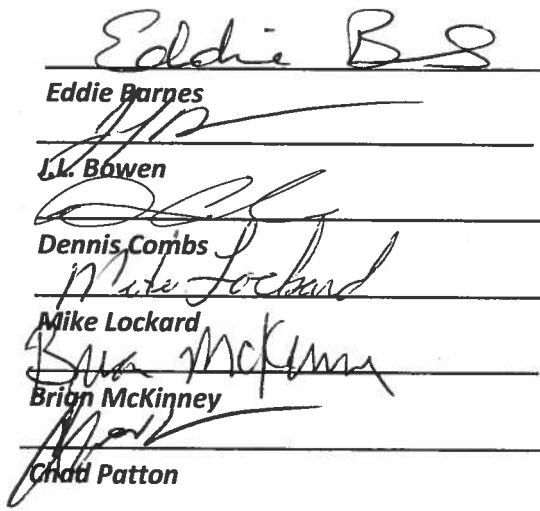 Eddie B
Eddie Barnes
J.L. Bowen
Dennis Combs
Mike Lockard
Mike Lockard
Brian McKinney
Brian McKinney
Chad Patton